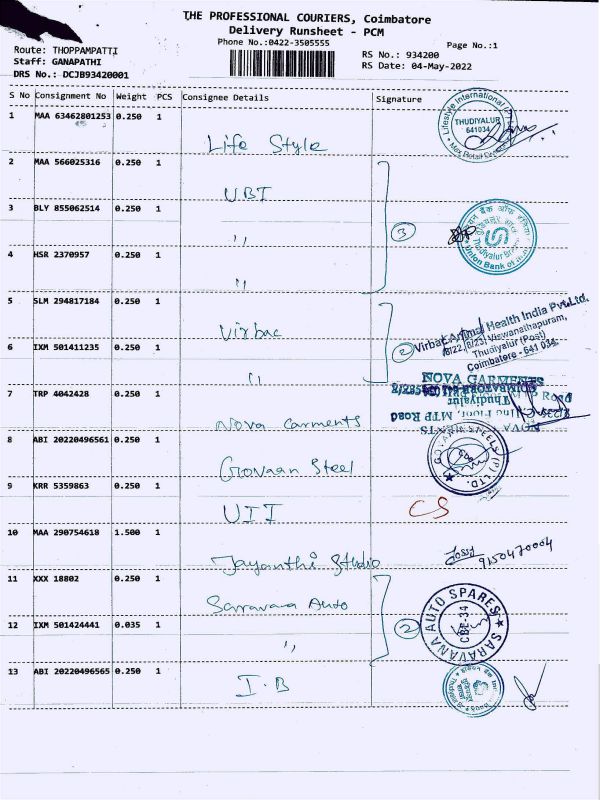 THE PROFESSIONAL COURIERS, Coimbatore
Delivery Runsheet - PCM
Phone No.:0422-3505555
Page No.:1
Route: THOPPAMPATTI
Staff: GANAPATHI
DRS No.: DCJB93420001
RS No.: 934200
RS Date: 04-May-2022
S No Consignment No Weight PCS Consignee Details Signature
1 MAA 63462801253 0.250 1
Life Style
THUDIYALUR
641034
2 MAA 566025316 0.250 1
UBI
3 BLY 855062514 0.250 1
,,
3
Union Bank of
4 HSR 2370957 0.250 1
,,
5 SLM 294817184 0.250 1
Virbac
2
Virbac Animal Health India Pvt.Ltd.
Viswanathapuram,
Thudiyalur (Post)
Coimbatore - 641 034.
6 IXM 501411235 0.250 1
,,
NOVA GARMENTS
7 TRP 4042428 0.250 1
Nova Garments
Thudiyalur
MTP Road
8 ABI 20220496561 0.250 1
Govaan Steel
STEELS (P) LTD.
9 KRR 5359863 0.250 1
UII
CS
10 MAA 290754618 1.500 1
Jayanthi Studio
9150470004
11 XXX 18802 0.250 1
Saravana Auto
12 IXM 501424441 0.035 1
,,
2
SARAVANA AUTO SPARES
CBE-34
13 ABI 20220496565 0.250 1
I.B